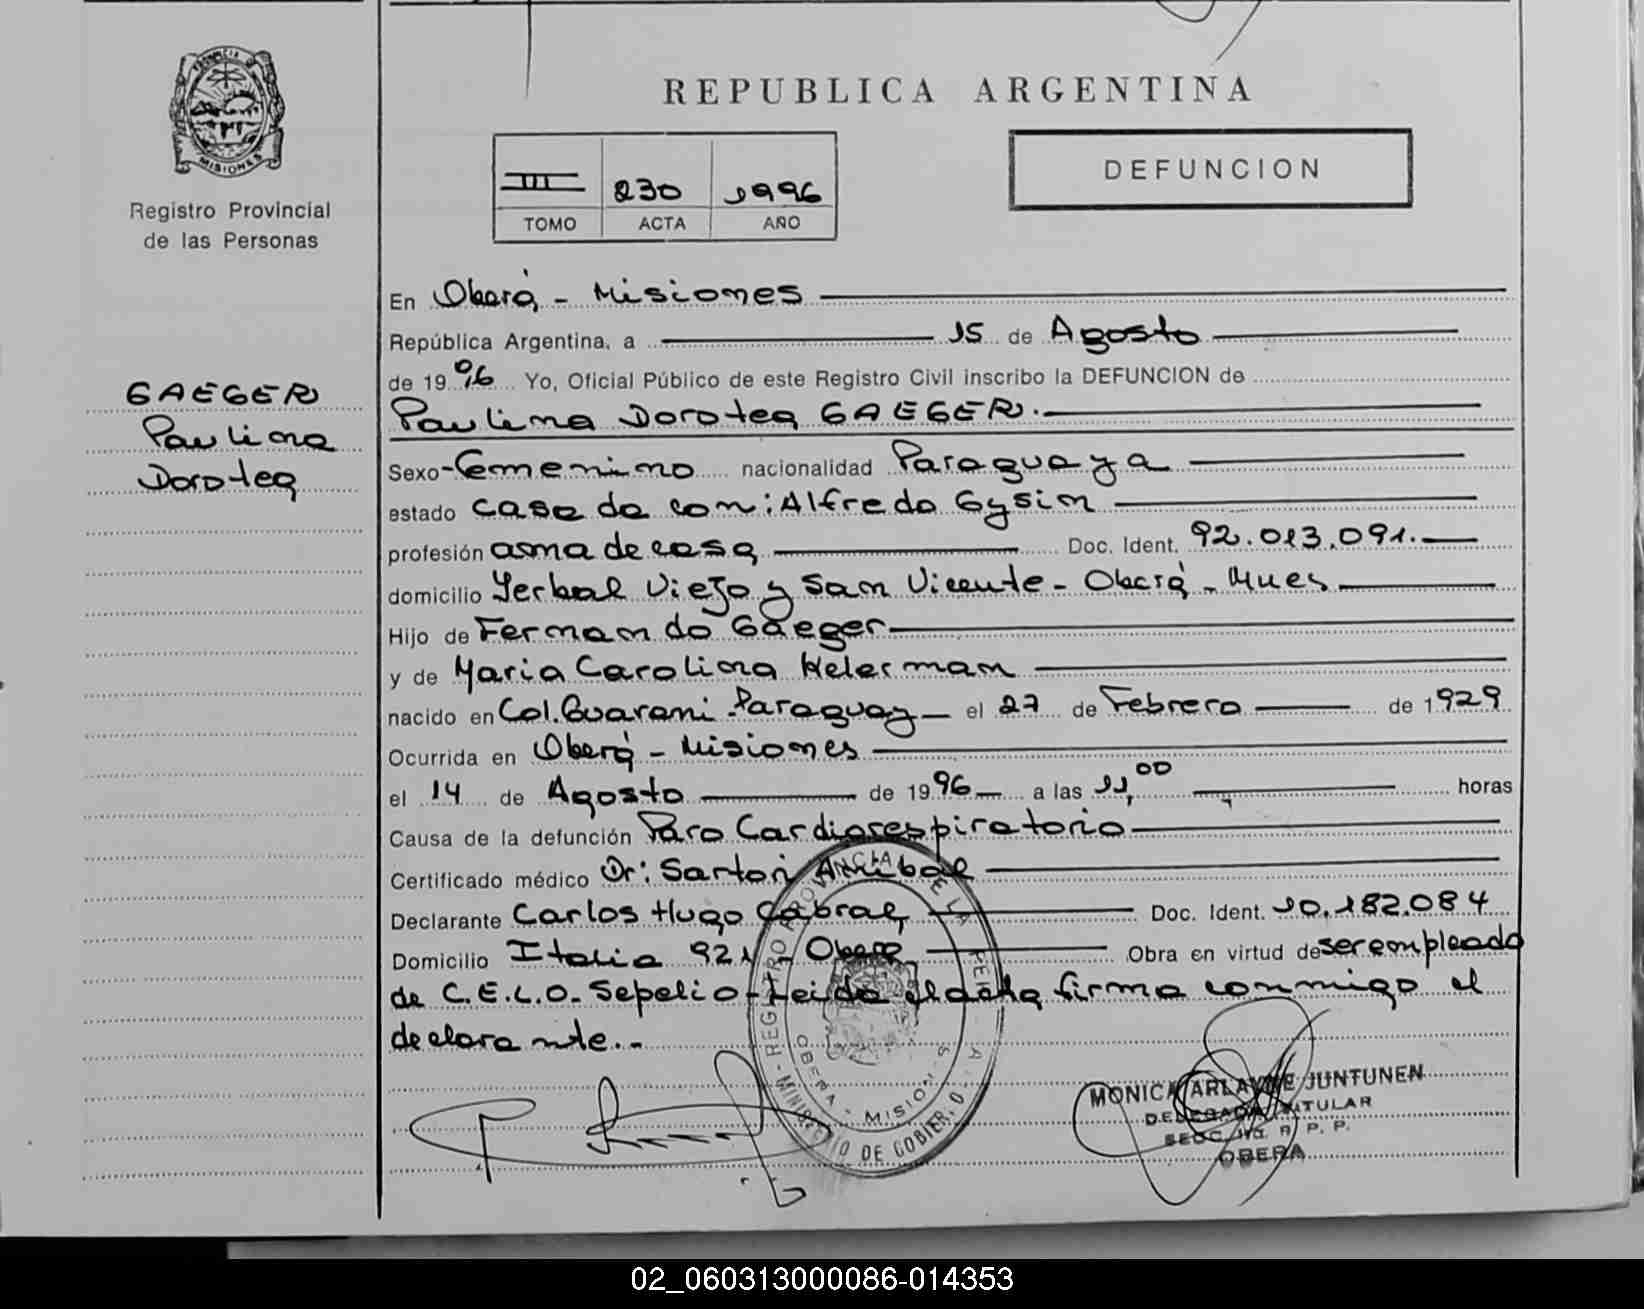 REPUBLICA ARGENTINA
PROVINCIA
MISIONES
Registro Provincial
de las Personas
III 230 1996
TOMO ACTA AÑO
DEFUNCION
GAEGER
Paulina
Dorotea
En Oberá - Misiones
República Argentina, a 15 de Agosto
de 1996 Yo, Oficial Público de este Registro Civil inscribo la DEFUNCION de
Paulina Dorotea GAEGER.
Sexo Femenino nacionalidad Paraguaya
estado casada con: Alfredo Gysin
profesión ama de casa Doc. Ident. 92.013.091.
domicilio Yerbal Viejo y San Vicente - Oberá - Mnes
Hijo de Fernando Gaeger
y de Maria Carolina Helerman
nacido en Col. Guarani - Paraguay el 27 de Febrero de 1929
Ocurrida en Oberá - Misiones
el 14 de Agosto de 1996 a las 11,00 horas
Causa de la defunción Paro Cardiorespiratorio
Certificado médico Dr: Sartori Anibal
Declarante Carlos Hugo Cabral Doc. Ident. 10.182.084
Domicilio Italia 921 - Oberá Obra en virtud de ser empleado
de C.E.L.O. Sepelio - Leida el acta firma conmigo el
declarante.-
REGISTRO PROVINCIAL DE LA
MINISTERIO DE GOBIERNO
OBERA - MISIONES
MONICA ARLAYNE JUNTUNEN
DELEGADA TITULAR
R. P. P.
OBERA
02_060313000086-014353